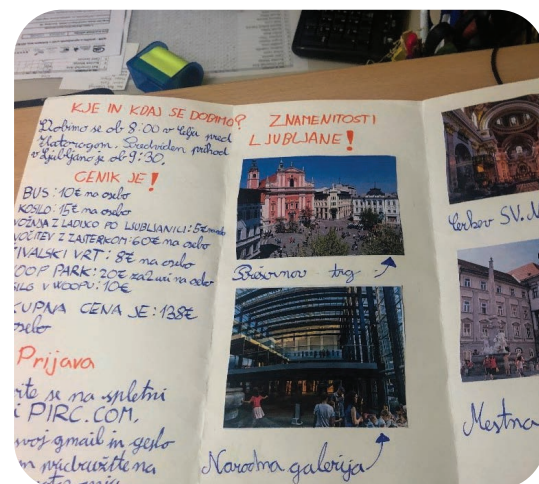 KJE IN KDAJ SE DOBIMO?
Dobimo se ob 8:00 v Celju pred
Zlatorogom. Predviden prihod
v Ljubljano je ob 9:30.
CENIK JE!
BUS: 10€ na osebo
KOSILO: 15€ na osebo
VOŽNJA Z LADJKO PO LJUBLJANICI: 5€
NOČITEV Z ZAJTERKOM: 60€ na osebo
ŽIVALSKI VRT: 8€ na osebo
WOOP PARK: 20€ za 2 uri na osebo
V WOOPU: 10€
CENA JE: 138€
osebo
Prijava
se na spletni
PIRC.COM,
svoj gmail in geslo
in pridružite na
ZNAMENITOSTI
LJUBLJANE!
Prešernov trg
Narodna galerija
Cerkev SV.
Mestna